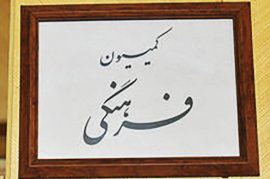 کمیسیون
فرهنگی